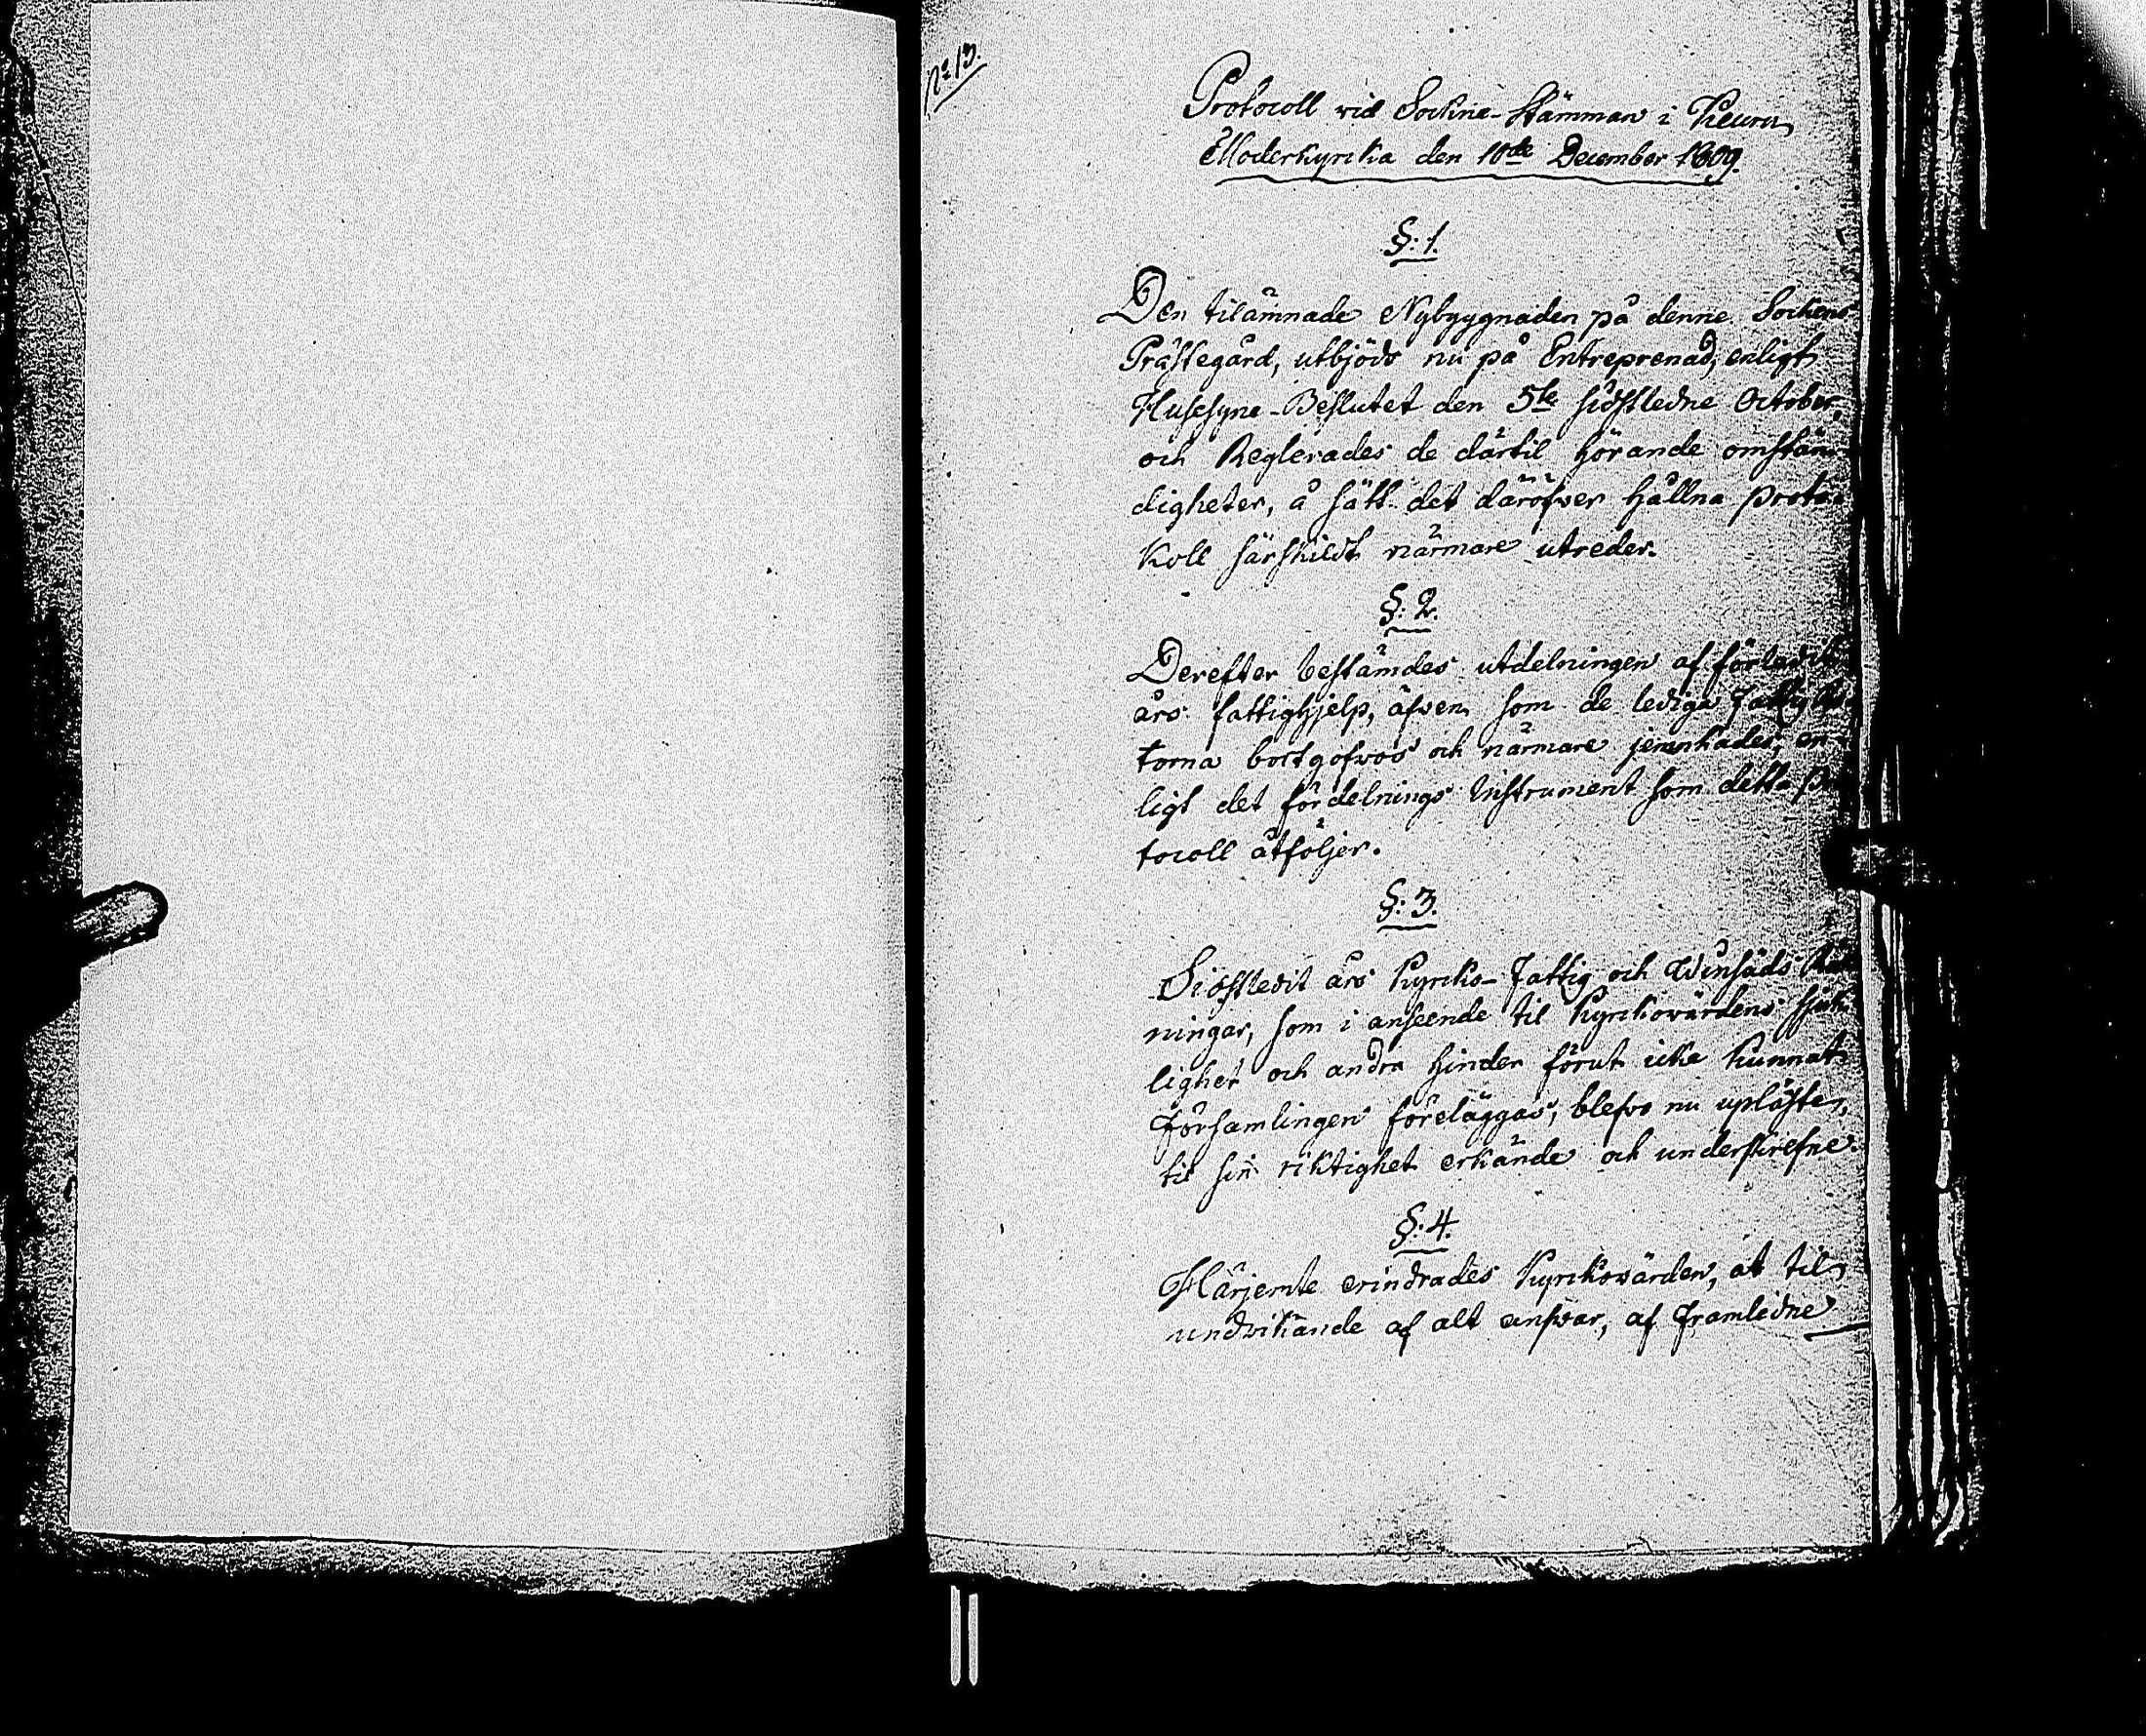 No 13.
Protocoll vid Sockne-Stämman i Keuru
Moderkyrcka den 10de December 1809.
§. 1.
Den tilämnade Nybyggnaden på denne Sockens
Prästegård, utbjöds nu på Entreprenad, enligt
Husesyns-Beslutet den 5te sidstledne October,
och Reglerades de därtil hörande omstän-
digheter, å sätt det däröfver hållna proto-
koll särskildt närmare utreder.
§. 2.
Derefter bestämdes utdelningen af förledit
års fattighjelp, äfven som de lediga
torna bortgofvos och närmare jemnkades, en-
ligt det fördelnings Instrument som detta pro
tocoll åtföljer.
§. 3.
Sidstledit års Kyrcko- Fattig och Winsäds Räk
ningar, som i anseende til Kyrckovärdens sjuk
lighet och andra hinder förut icke kunnat
Församlingen föreläggas, blefvo nu upläste,
til sin riktighet erkände och underskrefne.
§. 4.
Härjemte erindrades Kyrckovärden, at til
undvikande af alt ansvar, af framledne